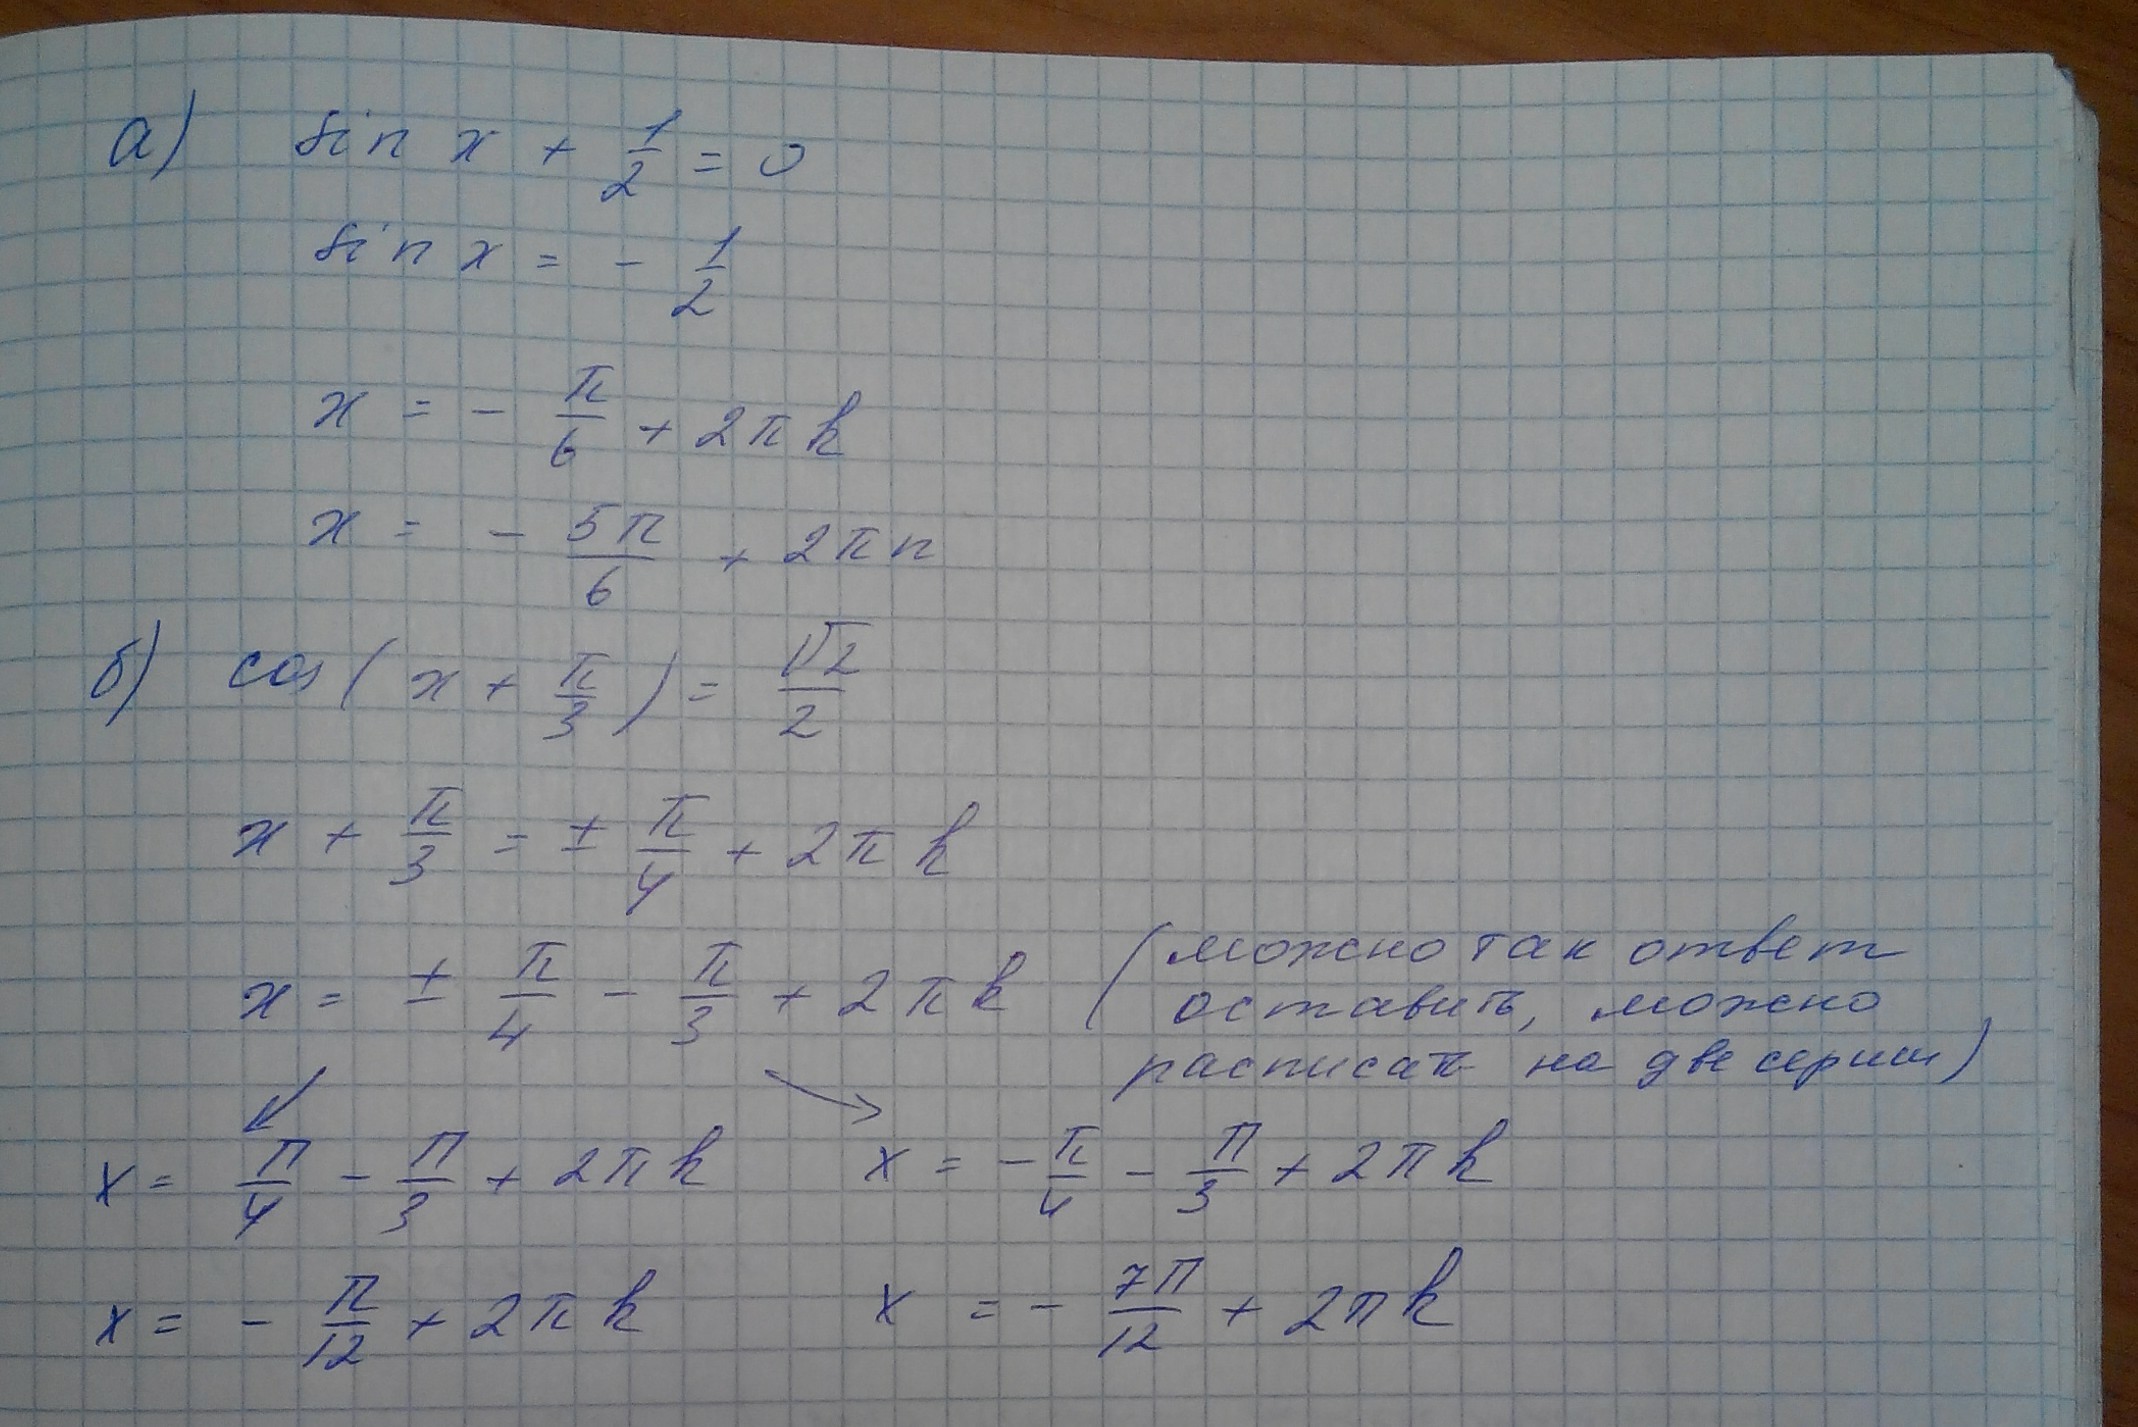 а) sin x + 1/2 = 0
sin x = - 1/2
x = - π/6 + 2πk
x = - 5π/6 + 2πn
б) cos(x + π/3) = √2/2
x + π/3 = ± π/4 + 2πk
x = ± π/4 - π/3 + 2πk
(можно так ответ
оставить, можно
расписать на две серии)
x = π/4 - π/3 + 2πk
x = - π/4 - π/3 + 2πk
x = - π/12 + 2πk
x = - 7π/12 + 2πk